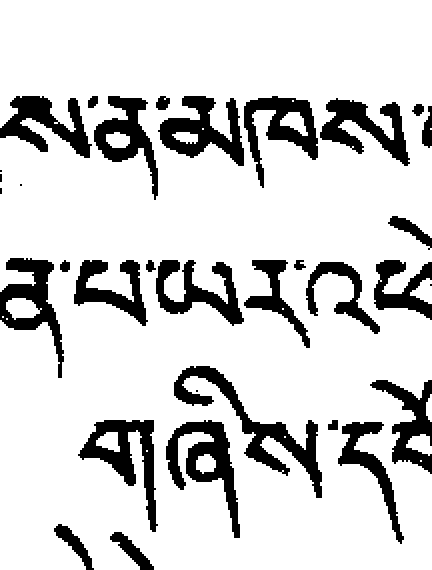 ས་ན་མཁས་
ན་པ་ཡར་འཕེ
གཉིས་དཔོ